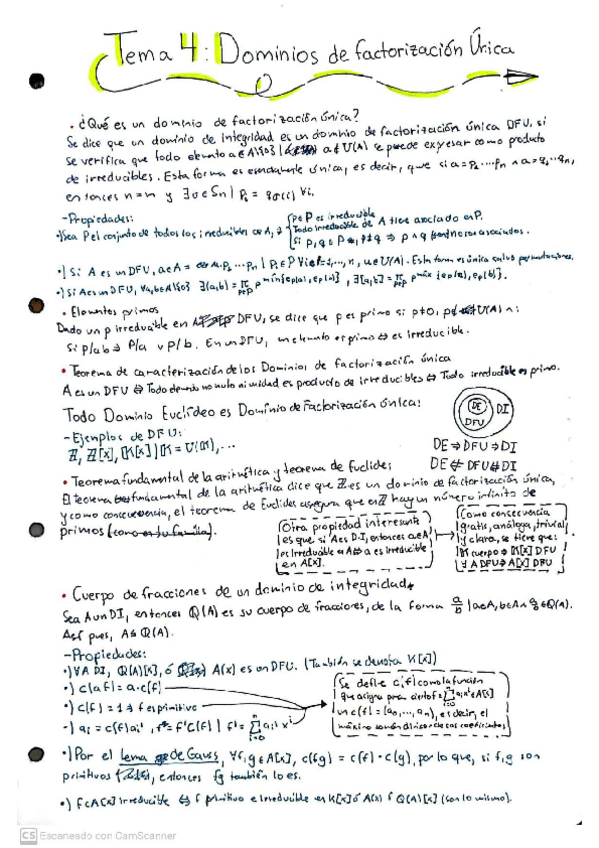 Tema 4: Dominios de factorización Única
• ¿Qué es un dominio de factorización única?
Se dice que un dominio de integridad es un dominio de factorización única DFU, si
se verifica que todo elemento a∈A\{0} | a∉U(A) se puede expresar como producto
de irreducibles. Esta forma es esencialmente única, es decir, que si a=p₁...pₙ ∧ a=q₁...qₘ,
entonces n=m y ∃σ∈Sn | Pᵢ = qσ(i) ∀i.
-Propiedades:
•)Sea P el conjunto de todos los irreducibles de A,
p∈P es irreducible
Todo irreducible de A tiene asociado en P.
Si p, q ∈ P, p≠q ⇒ p ∧ q no asociados.
•) Si A es un DFU, a∈A = u·p₁...pₙ | pᵢ∈P ∀i=1,...,n, u∈U(A). Esta forma es única salvo permutaciones.
•) Si A es un DFU, ∀a,b∈A\{0} ∃(a,b) = ∏ p^mín{ep(a), ep(b)}, ∃[a,b] = ∏ p^máx{ep(a), ep(b)}.
• Elementos primos
Dado un p irreducible en A DFU, se dice que p es primo si p≠0, p∉U(A) ∧:
Si p/ab ⇒ p/a ∨ p/b. En un DFU, un elemento es primo ⇔ es irreducible.
• Teorema de caracterización de los Dominios de factorización única
A es un DFU ⇔ Todo elemento no nulo ni unidad es producto de irreducibles ⇔ Todo irreducible es primo.
Todo Dominio Euclídeo es Dominio de Factorización Única:
DE
DFU
DI
-Ejemplos de DFU:
ℤ, ℤ[x], 𝕂[x]
DE ⇒ DFU ⇒ DI
DE ⇍ DFU ⇍ DI
• Teorema fundamental de la aritmética y teorema de Euclides
El teorema fundamental de la aritmética dice que ℤ es un dominio de factorización única,
y como consecuencia, el teorema de Euclides asegura que en ℤ hay un número infinito de
primos
Otra propiedad interesante
es que si A es D.I, entonces a∈A
es irreducible en A ⇔ a es irreducible
en A[x].
Como consecuencia
gratis, análoga, trivial
y clara, se tiene que:
𝕂 cuerpo ⇒ 𝕂[x] DFU
∀ A DFU ⇒ A[x] DFU
• Cuerpo de fracciones de un dominio de integridad
Sea A un DI, entonces Q(A) es su cuerpo de fracciones, de la forma a/b | a∈A, b∈A
Así pues, A⊆Q(A).
-Propiedades:
•) ∀A DI, Q(A)[x], ó A(x) es un DFU. (También se denota K[x])
•) c(af) = a·c(f)
•) c(f) = 1 ⇒ f es primitivo
-) aᵢ = c(f)aᵢ', f = c(f) | f' = Σ aᵢ' xⁱ
Se define c(f) como la función
máximo común divisor de sus coeficientes
•) Por el lema de Gauss, ∀f,g∈A[x], c(fg) = c(f)·c(g), por lo que, si f,g son
primitivos, entonces fg también lo es.
•) f∈A[x] irreducible ⇔ f primitivo e irreducible en K[x] ó A(x) ó Q(A)[x] (son lo mismo).
CS Escaneado con CamScanner